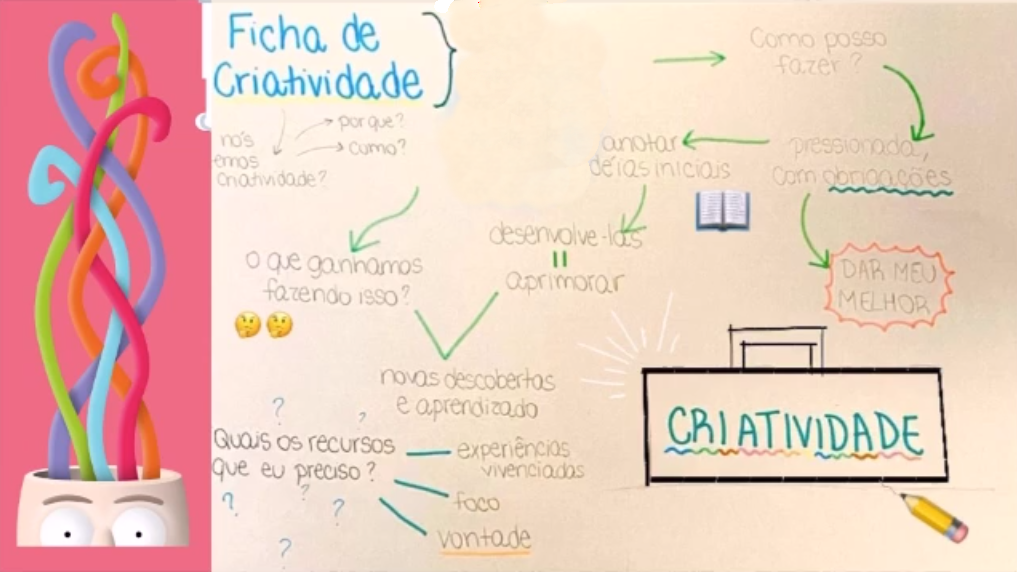 Ficha de
Criatividade
por que?
cumo?
nós
emos
criatividade?
Como posso
fazer?
anotar
deias iniciais
pressionada,
com obrigações
DAR MEU
MELHOR
desenvolve-las
"
aprimorar
o que ganhamos
fazendo isso?
novas descobertas
e aprendizado
Quais os recursos
que eu preciso?
experiências
vivenciadas
foco
vontade
CRIATIVIDADE